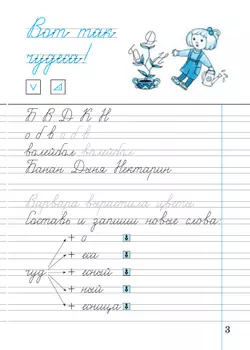 Вот так
чудеса!
Б В Д К Н
о б в о б в
волейбол волейбол
Банан Дыня Нектарин
Варвара вырастила цветы.
Составь и запиши новые слова.
чуд
+ о
+ еса
+ есный
+ ный
+ есница
3